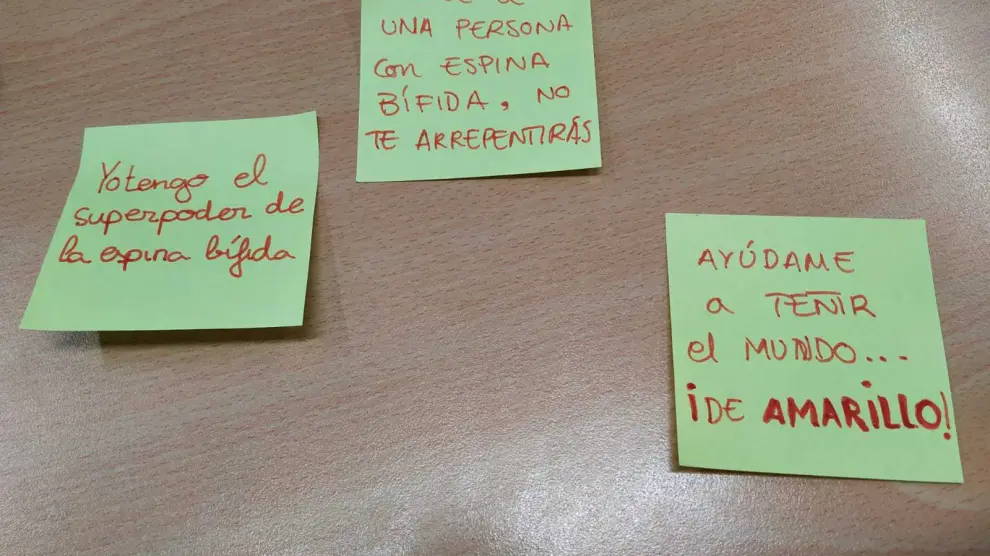 UNA PERSONA
con ESPINA
BÍFIDA, NO
TE ARREPENTIRÁS
Yo tengo el
superpoder de
la espina bífida
AYÚDAME
a TEÑIR
el MUNDO...
¡DE AMARILLO!